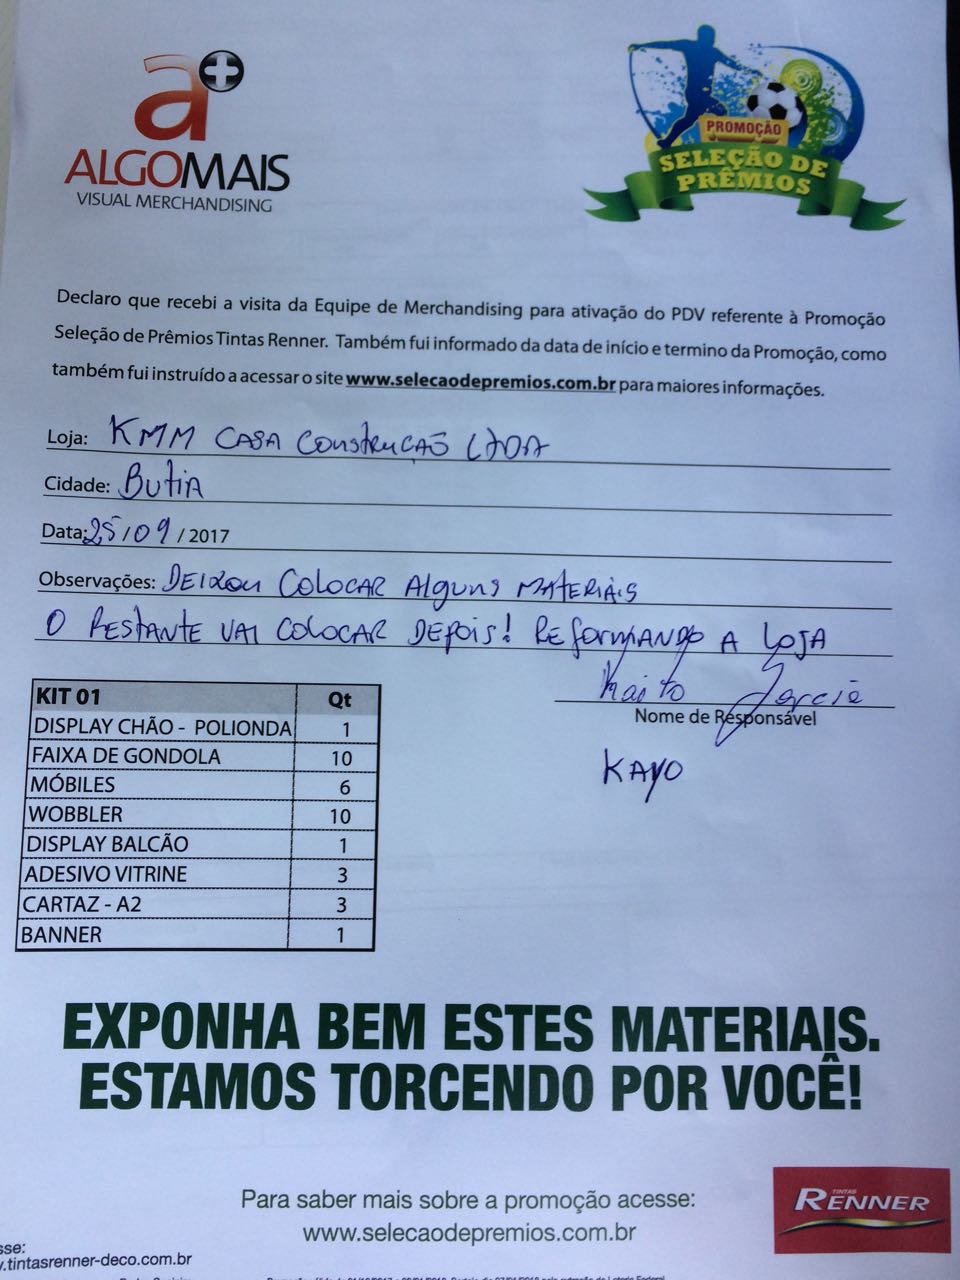 a+
ALGOMAIS
VISUAL MERCHANDISING
PROMOÇÃO
SELEÇÃO DE
PRÊMIOS
Declaro que recebi a visita da Equipe de Merchandising para ativação do PDV referente à Promoção
Seleção de Prêmios Tintas Renner. Também fui informado da data de início e termino da Promoção, como
também fui instruído a acessar o site www.selecaodepremios.com.br para maiores informações.
Loja: KMM CASA CONSTRUÇÃO LTDA
Cidade: BUTIA
Data: 25/09/2017
Observações: DEIXOU COLOCAR ALGUNS MATERIÁIS
O RESTANTE VAI COLOCAR DEPOIS! REFORMANDO A LOJA
Nome de Responsável
KAYO
KIT 01 Qt
DISPLAY CHÃO - POLIONDA 1
FAIXA DE GONDOLA 10
MÓBILES 6
WOBBLER 10
DISPLAY BALCÃO 1
ADESIVO VITRINE 3
CARTAZ - A2 3
BANNER 1
EXPONHA BEM ESTES MATERIAIS.
ESTAMOS TORCENDO POR VOCÊ!
Para saber mais sobre a promoção acesse:
www.selecaodepremios.com.br
TINTAS
RENNER
sse:
.tintasrenner-deco.com.br